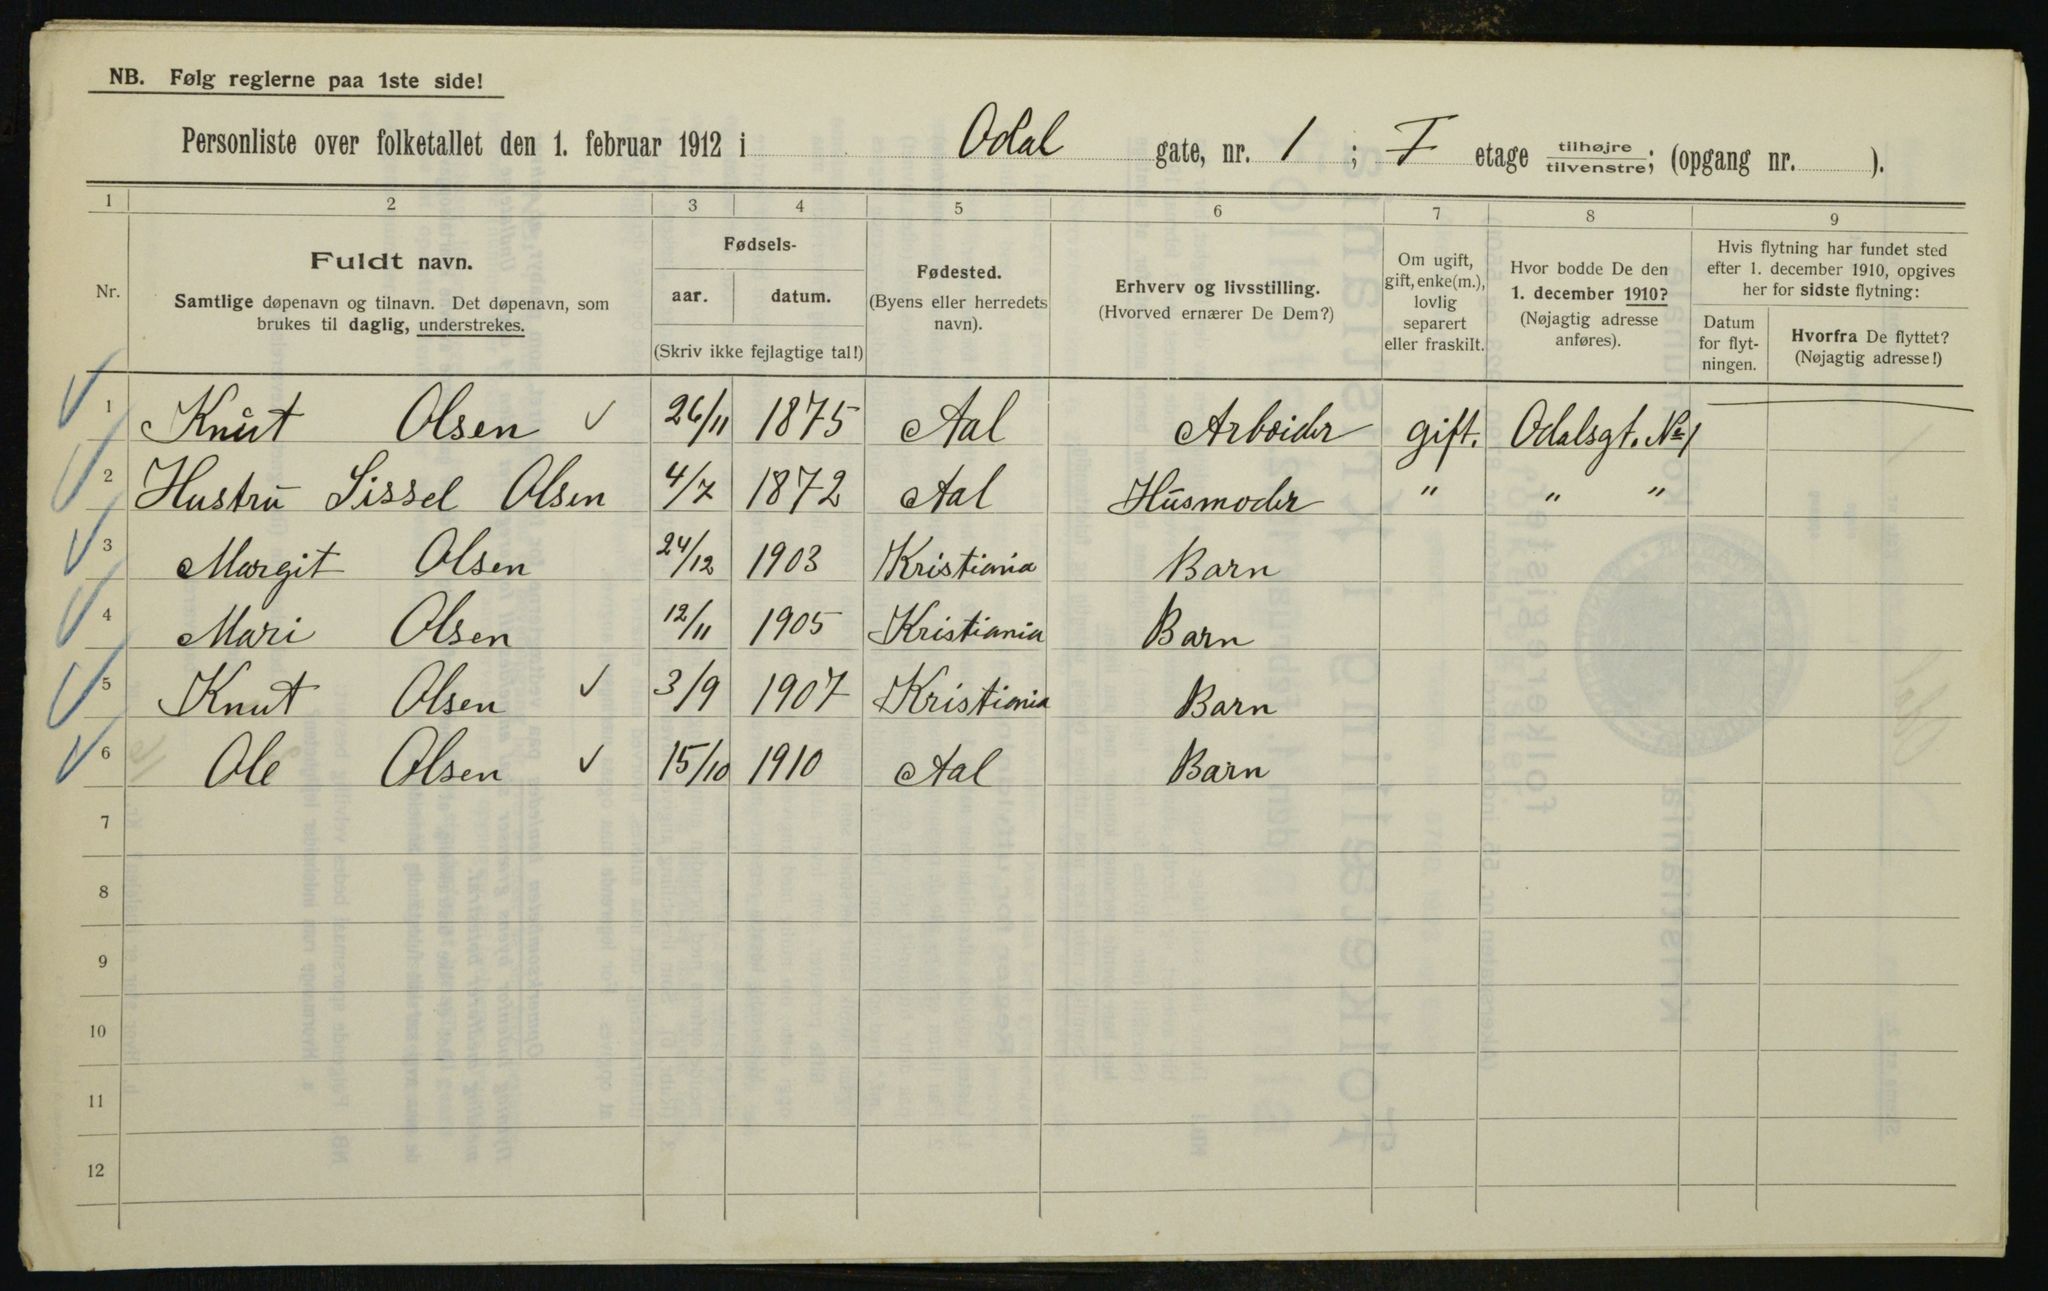 NB. Følg reglerne paa 1ste side!
Personliste over folketallet den 1. februar 1912 i Odal gate, nr. 1 ; I etage tilhøjre/tilvenstre; (opgang nr. ).
1 2 3 4 5 6 7 8 9
Nr.
Fuldt navn.
Samtlige døpenavn og tilnavn. Det døpenavn, som
brukes til daglig, understrekes.
Fødsels-
aar. datum.
(Skriv ikke fejlagtige tal!)
Fødested.
(Byens eller herredets
navn).
Erhverv og livsstilling.
(Hvorved ernærer De Dem?)
Om ugift,
gift, enke(m.),
lovlig
separert
eller fraskilt.
Hvor bodde De den
1. december 1910?
(Nøjagtig adresse
anføres).
Hvis flytning har fundet sted
efter 1. december 1910, opgives
her for sidste flytning:
Datum
for flyt-
ningen.
Hvorfra De flyttet?
(Nøjagtig adresse!)
1 Knut Olsen 26/11 1875 Aal Arbeider gift. Odalsgt. No 1
2 Hustru Sissel Olsen 4/7 1872 Aal Husmoder " " "
3 Margit Olsen 24/12 1903 Kristiania Barn
4 Mari Olsen 12/11 1905 Kristiania Barn
5 Knut Olsen 3/9 1907 Kristiania Barn
6 Ole Olsen 15/10 1910 Aal Barn
7
8
9
10
11
12